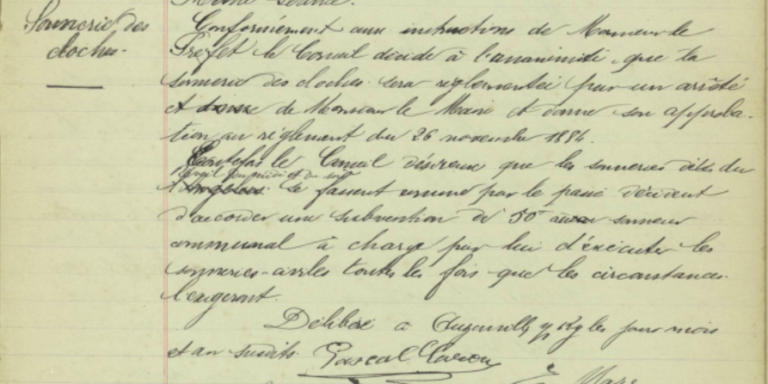 Sonnerie des
cloches.
Même séance.
Conformément aux instructions de Monsieur le
Préfet le Conseil décide à l'unanimité que la
sonnerie des cloches sera réglementée par un arrêté
et de Monsieur le Maire et donne son approba-
tion au réglement du 26 novembre 1884.
Toutefois le Conseil désireux que les sonneries dites du
se fassent comme par le passé décident
d'accorder une subvention de 50 f au sonneur
communal à charge par lui d'exécuter les
sonneries civiles toutes les fois que les circonstances
l'exigeront.
Délibéré à les jour mois
et an susdits. Pascal